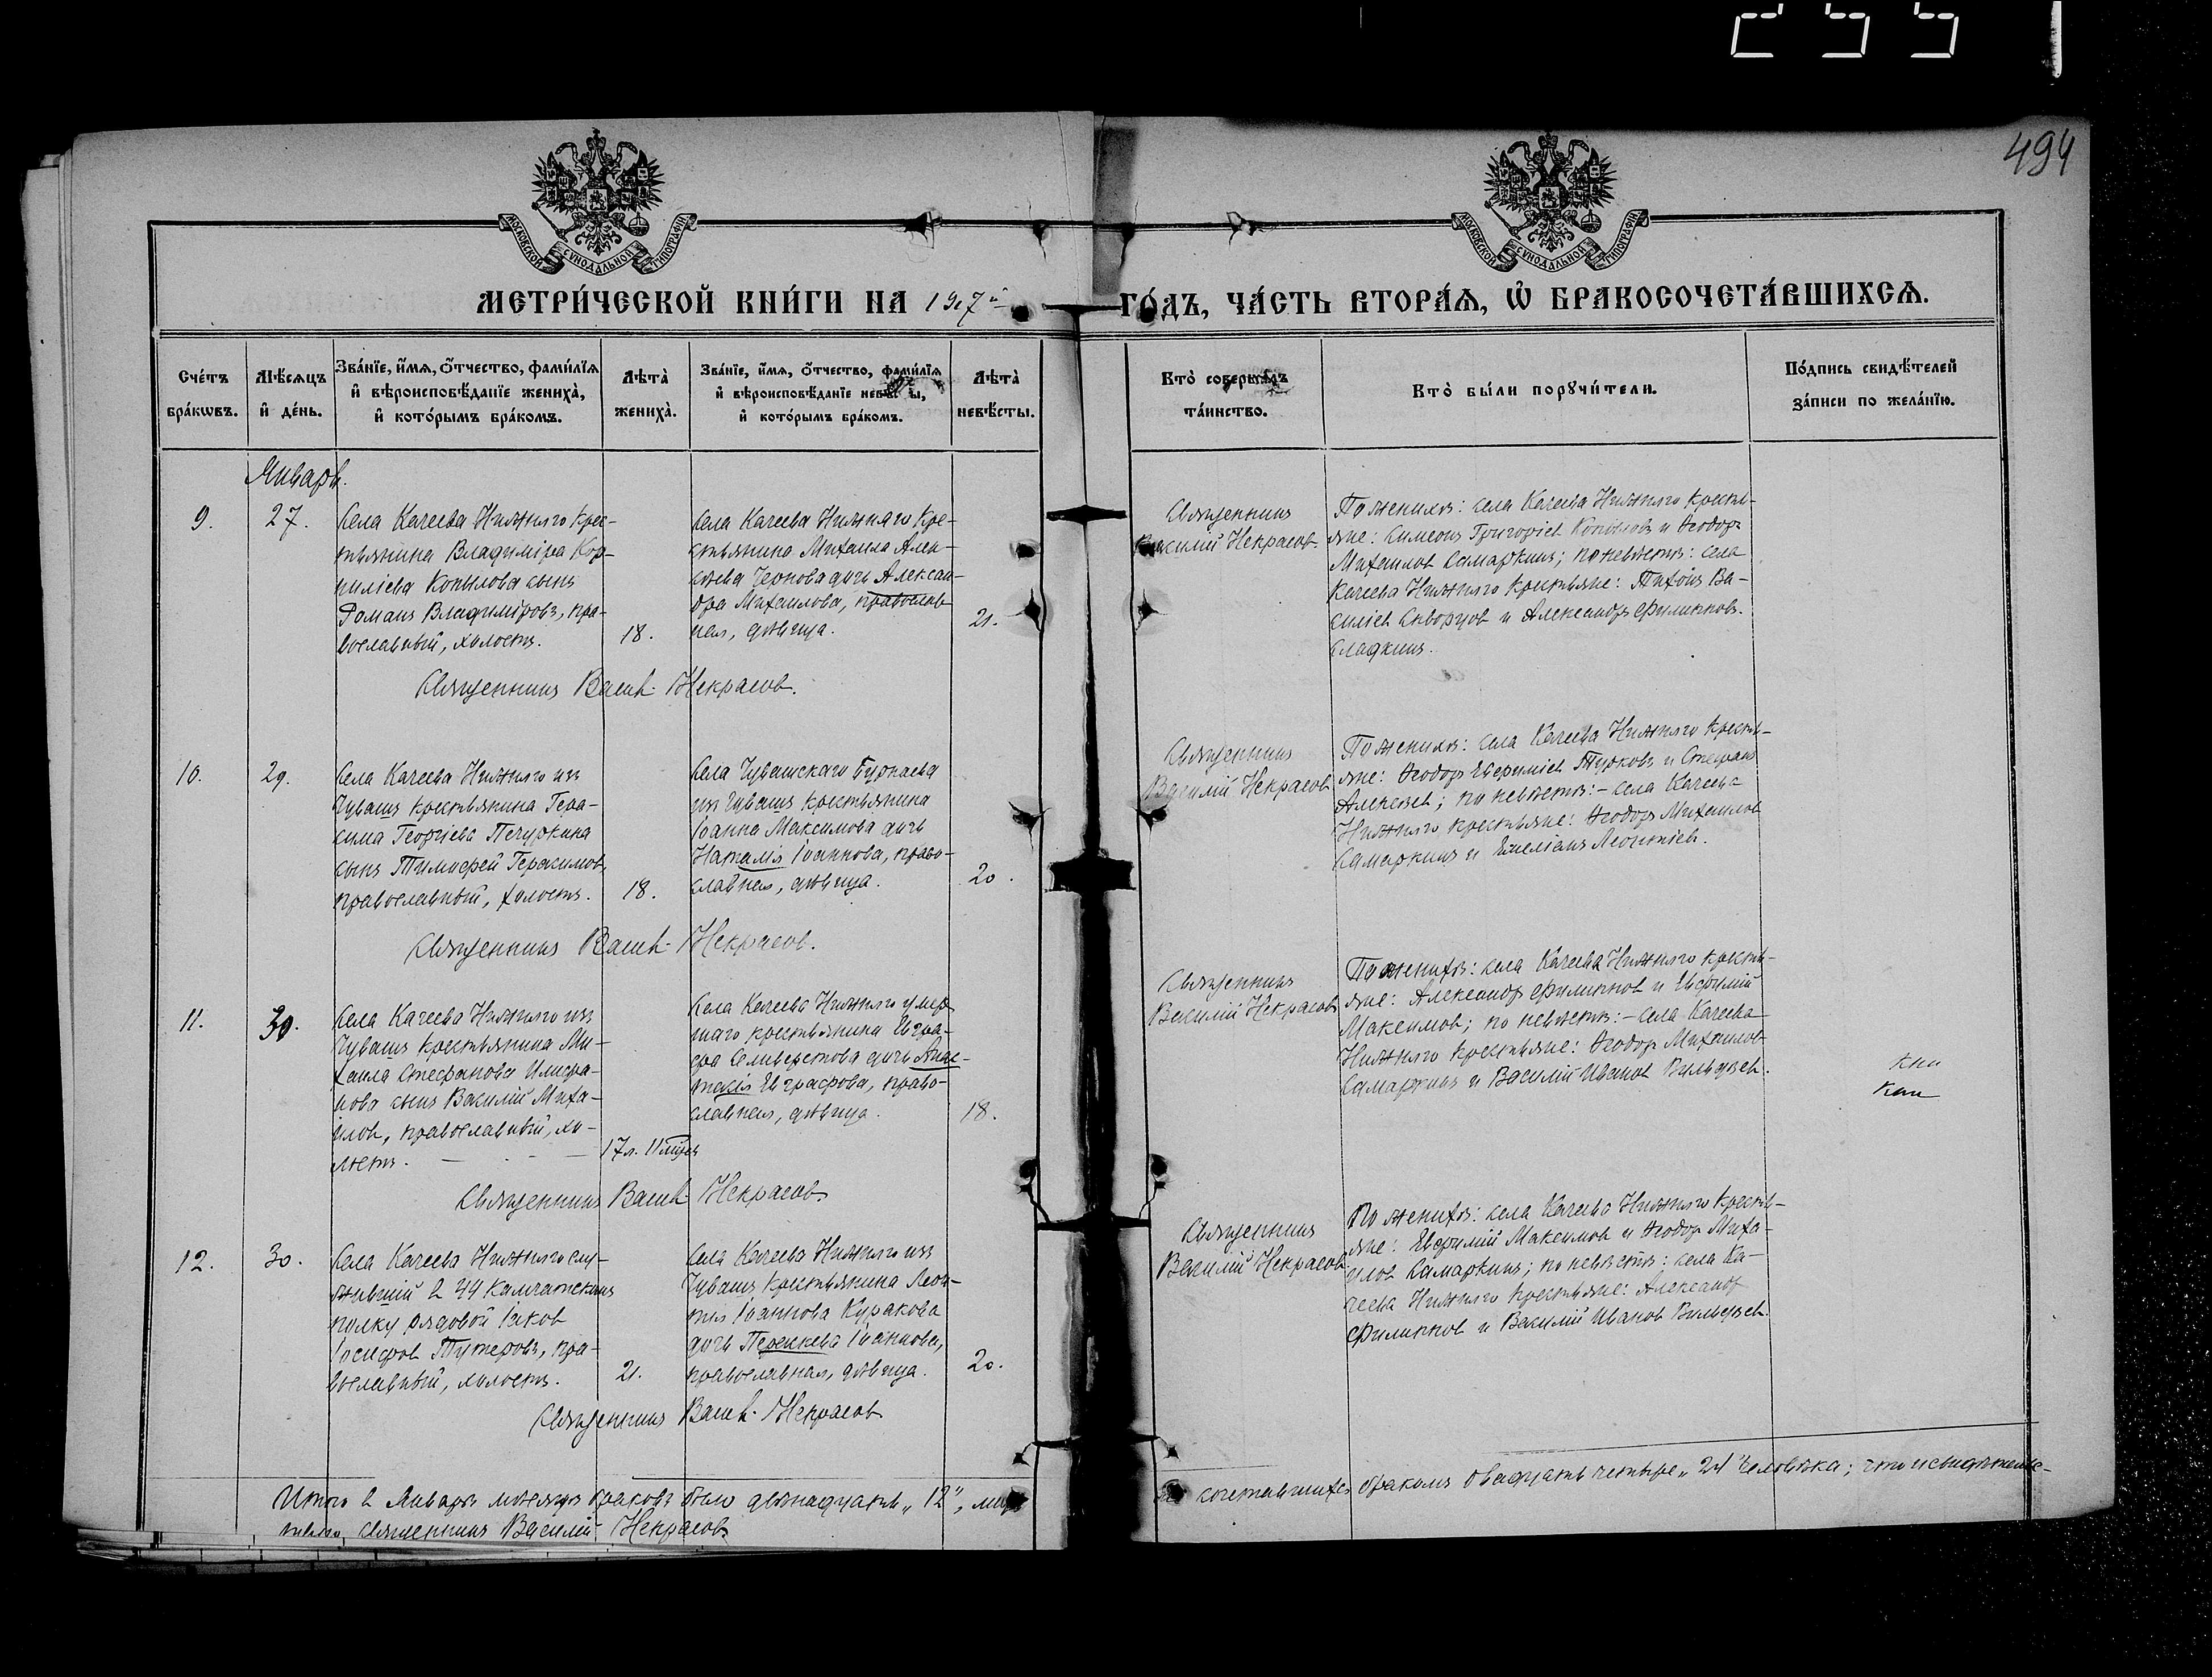 255
494
МОСКОВСКОЙ СѴНОДАЛЬНОЙ ТИПОГРАФІИ
МОСКОВСКОЙ СѴНОДАЛЬНОЙ ТИПОГРАФІИ
МЕТРИ́ЧЕСКОЙ КНИ́ГИ НА 1907й
ГО́ДЪ, ЧА́СТЬ ВТОРА́Ѧ, Ѡ҆ БРАКОСОЧЕТА́ВШИХСѦ.
Сче́тъ бра́кѡвъ.
Мѣ́сѧцъ и҆ де́нь.
Зва́нїе, и҆́мѧ, ѻ҆́тчество, фами́лїѧ
и҆ вѣроисповѣ́данїе жениха̀,
и҆ кото́рымъ бра́комъ.
Лѣта̀ жениха̀.
Зва́нїе, и҆́мѧ, ѻ҆́тчество, фами́лїѧ
и҆ вѣроисповѣ́данїе невѣ́сты,
и҆ кото́рымъ бра́комъ.
Лѣта̀ невѣ́сты.
Кто̀ соверша́лъ
та́инство.
Кто̀ бы́ли порꙋчи́тели.
По́дпись свидѣ́телей
за́писи по жела́нїю.
Январь.
9.
27.
Села Качеева Нижняго крес-
тьянина Владиміра Кор-
ниліева Копылова сынъ
Романъ Владиміровъ, пра-
вославный, холостъ.
18.
Села Качеева Нижняго кре-
стьянина Михаила Алек-
сѣева Чернова дочь Алексан-
дра Михаилова, православ-
ная, дѣвица.
21.
Священникъ
Василій Некрасовъ.
По женихѣ: села Качеева Нижняго кресть-
яне: Симеонъ Григоріев Копыловъ и Ѳеодоръ
Михаилов Самаркинъ; по невѣстѣ: села
Качеева Нижняго крестьяне: Тихонъ Ва-
силіев Скворцов и Александръ Филипповъ
Сладкинъ.
Священникъ Васил. Некрасов.
10.
29.
Села Качеева Нижняго изъ
Чувашъ крестьянина Гера-
сима Георгіева Печуркина
сынъ Тимофей Герасимов,
православный, холостъ.
18.
Села Чувашскаго Бурнаева
изъ Чувашъ крестьянина
Іоанна Максимова дочь
Наталія Іоаннова, право-
славная, дѣвица.
20.
Священникъ
Василій Некрасов
По женихѣ: села Качеева Нижняго кресть-
яне: Ѳеодоръ Евфиміев Турковъ и Стефанъ
Алексѣев; по невѣстѣ:- села Качеева
Нижняго крестьяне: Ѳеодоръ Михаилов
Самаркинъ и Емеліанъ Леонтіев.
Священникъ Васил. Некрасов.
11.
30.
Села Качеева Нижняго изъ
Чувашъ крестьянина Ми-
хаила Стефанова
сынъ Василій Миха-
илов, православный, хо-
лостъ.
17л. 11 мѣс.
Села Качеева Нижняго умер-
шаго крестьянина Евгра-
фа Селиверстова дочь Анас-
тасія Евграфова, право-
славная, дѣвица.
18.
Священникъ
Василій Некрасов
По женихѣ: села Качеева Нижняго кресть-
яне: Александръ Филиппов и Евфимій
Максимов; по невѣстѣ:- села Качеева
Нижняго крестьяне: Ѳеодоръ Михаилов
Самаркинъ и Василій Иванов Вильдяев.
Священникъ Васил. Некрасов
12.
30.
Села Качеева Нижняго слу-
жившій в 44 Камчатскомъ
полку рядовой Іаков
Іосифов Тутеровъ, пра-
вославный, холостъ.
21.
Села Качеева Нижняго изъ
Чувашъ крестьянина Леон-
тія Іоаннова Куракова
дочь Параскева Іоаннова,
православная, дѣвица.
20.
Священникъ
Василій Некрасов
По женихѣ: села Качеева Нижняго кресть-
яне: Евфимій Максимов и Ѳеодоръ Миха-
илов Самаркинъ; по невѣстѣ: села Ка-
чеева Нижняго крестьяне: Александръ
Филиппов и Василій Иванов Вильдяев.
Священникъ Васил. Некрасов
Итого в Январѣ мѣсяцѣ браковъ было двѣнадцать „12", лицъ сочетавшихся бракомъ двадцать четыре „24" человѣка; что и свидѣтельс-
твую священникъ Василій Некрасовъ